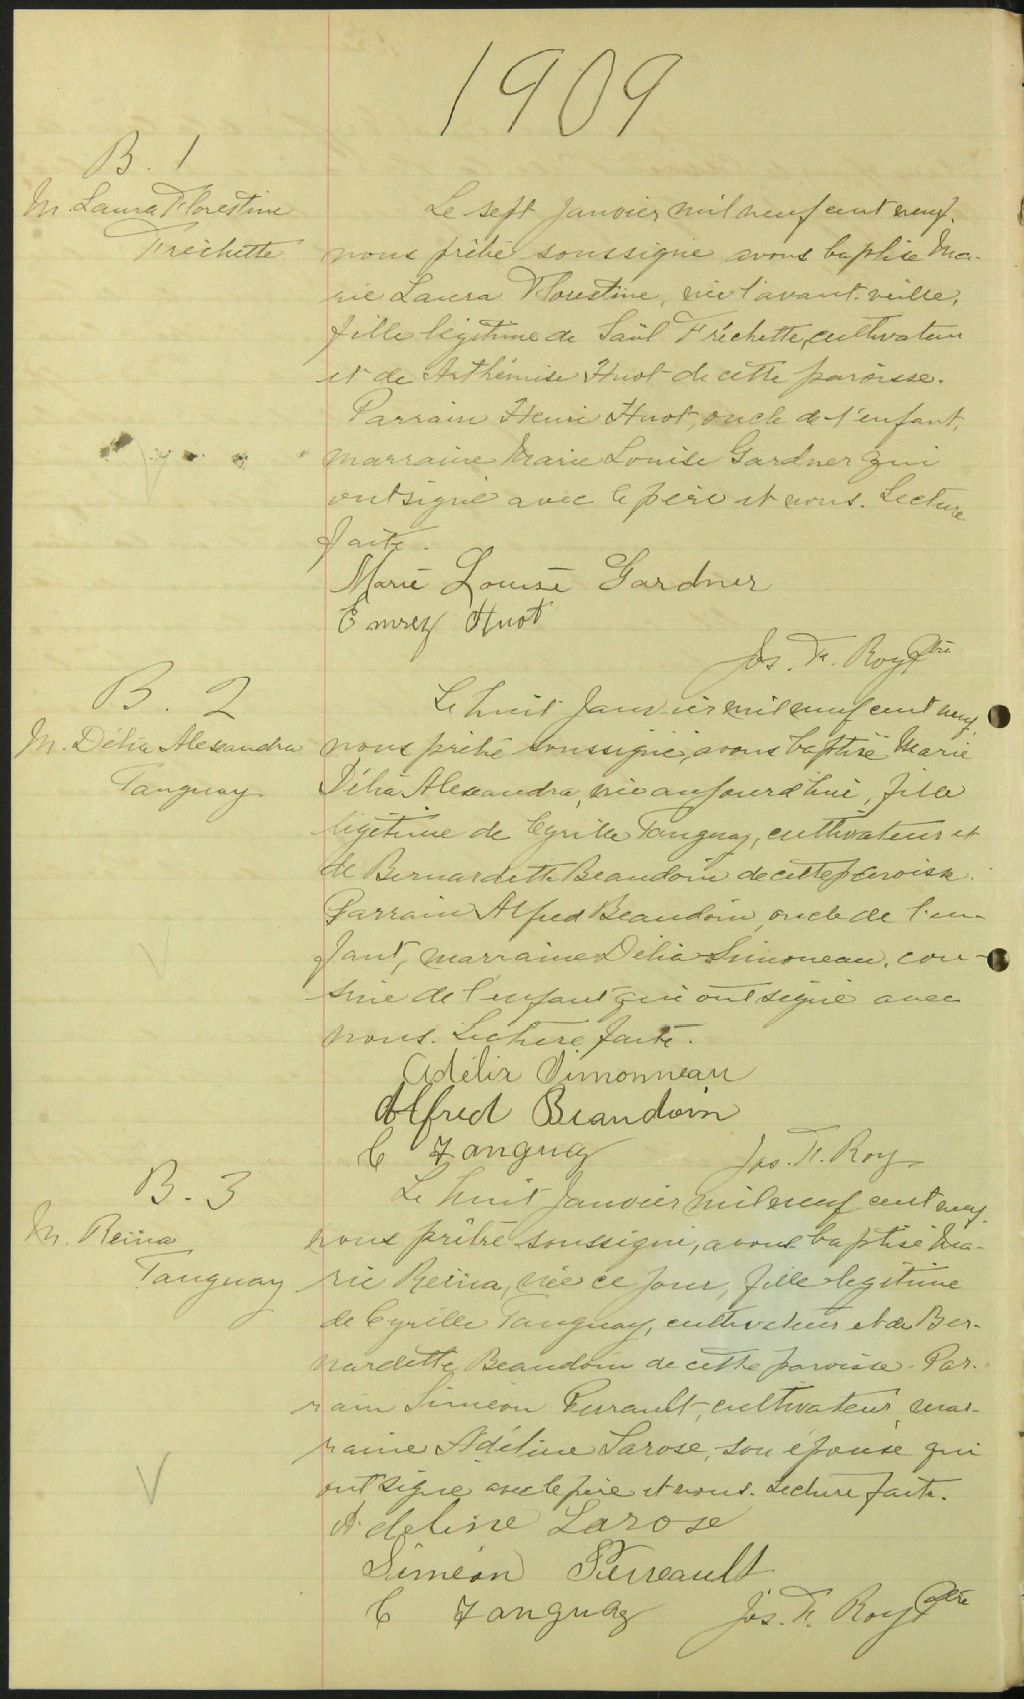 1909
B. 1
M. Laura Florestine
Fréchette
Le sept Janvier mil neuf cent neuf,
nous prêtre soussigné avons baptisé Ma-
rie Laura Florestine, née l'avant-veille,
fille légitime de Saül Fréchette, cultivateur
et de Arthémise Huot de cette paroisse.
Parrain Henri Huot, oncle de l'enfant,
marraine Marie Louise Gardner qui
ont signé avec le père et nous. Lecture
faite.
Marie Louise Gardner
Huot
Jos. F. Roy Ptre
B. 2
M. Délia Alexandra
Tanguay
Le huit Janvier mil neuf cent neuf,
nous prêtre soussigné, avons baptisé Marie
Délia Alexandra, née aujourd'hui, fille
légitime de Cyrille Tanguay, cultivateur et
de Bernardette Beaudoin de cette paroisse.
Parrain Alfred Beaudoin, oncle de l'en-
fant, marraine Délia Simoneau, cou-
sine de l'enfant qui ont signé avec
nous. Lecture faite.
Adélia Simonneau
Alfred Beaudoin
C Tanguay
Jos. F. Roy
B. 3
M. Reina
Tanguay
Le huit Janvier mil neuf cent neuf,
nous prêtre soussigné, avons baptisé Ma-
rie Reina, née ce jour, fille légitime
de Cyrille Tanguay, cultivateur et de Ber-
nardette Beaudoin de cette paroisse. Par-
rain Siméon Perrault, cultivateur, mar-
raine Adéline Larose, son épouse qui
ont signé avec le père et nous. Lecture faite.
Adeline Larose
Siméon Perreault
C Tanguay
Jos. F. Roy Ptre